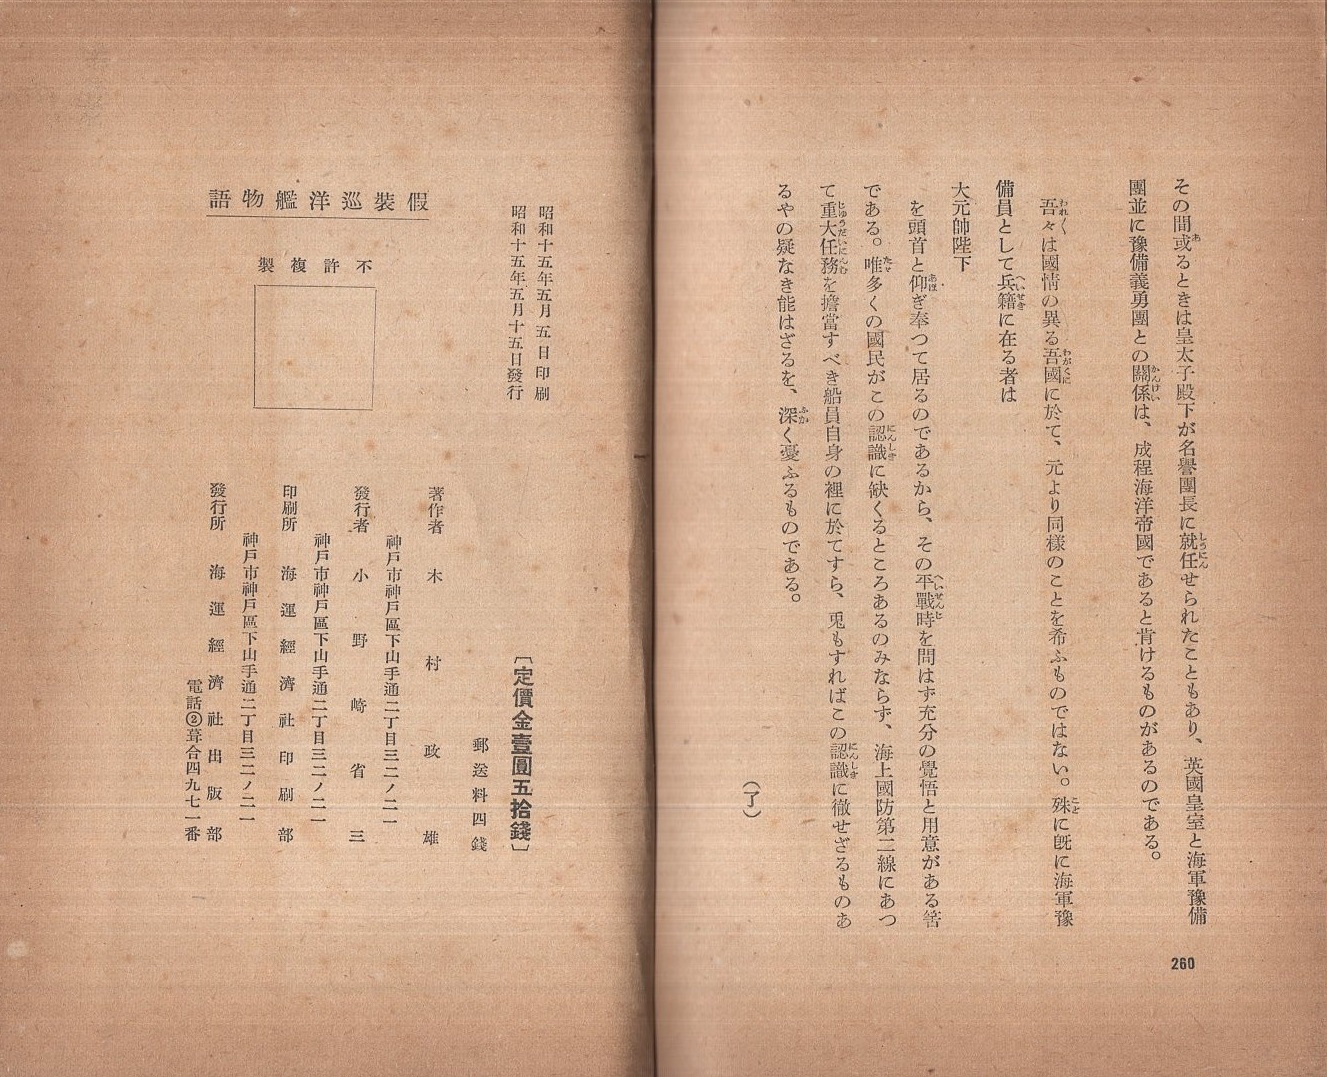 その間或るときは皇太子殿下が名譽團長に就任せられたこともあり、英國皇室と海軍豫備
團並に豫備義勇團との關係は、成程海洋帝國であると肯けるものがあるのである。
吾々は國情の異る吾國に於て、元より同樣のことを希ふものではない。殊に既に海軍豫
備員として兵籍に在る者は
大元帥陛下
を頭首と仰ぎ奉つて居るのであるから、その平戰時を問はず充分の覺悟と用意がある筈
である。唯多くの國民がこの認識に缺くるところあるのみならず、海上國防第二線にあつ
て重大任務を擔當すべき船員自身の裡に於てすら、兎もすればこの認識に徹せざるものあ
るやの疑なき能はざるを、深く憂ふるものである。
(了)
260
昭和十五年五月五日印刷
昭和十五年五月十五日發行
〔定價金壹圓五拾錢〕
郵送料四錢
假裝巡洋艦物語
不許複製
著作者 木村政雄
神戶市神戶區下山手通二丁目三二ノ二一
發行者 小野崎省三
神戶市神戶區下山手通二丁目三二ノ二一
印刷所 海運經濟社印刷部
神戶市神戶區下山手通二丁目三二ノ二一
發行所 海運經濟社出版部
電話②葺合四九七一番